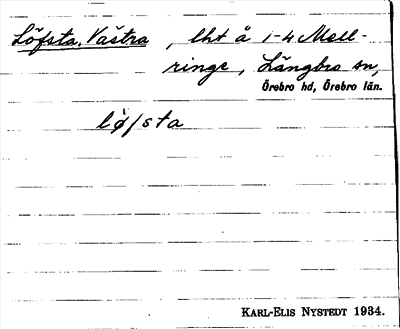 Löfsta, Västra, lht å 1-4 Mell-
ringe, Längbro sn,
Örebro hd, Örebro län.
lø̀fsta
KARL-ELIS NYSTEDT 1934.